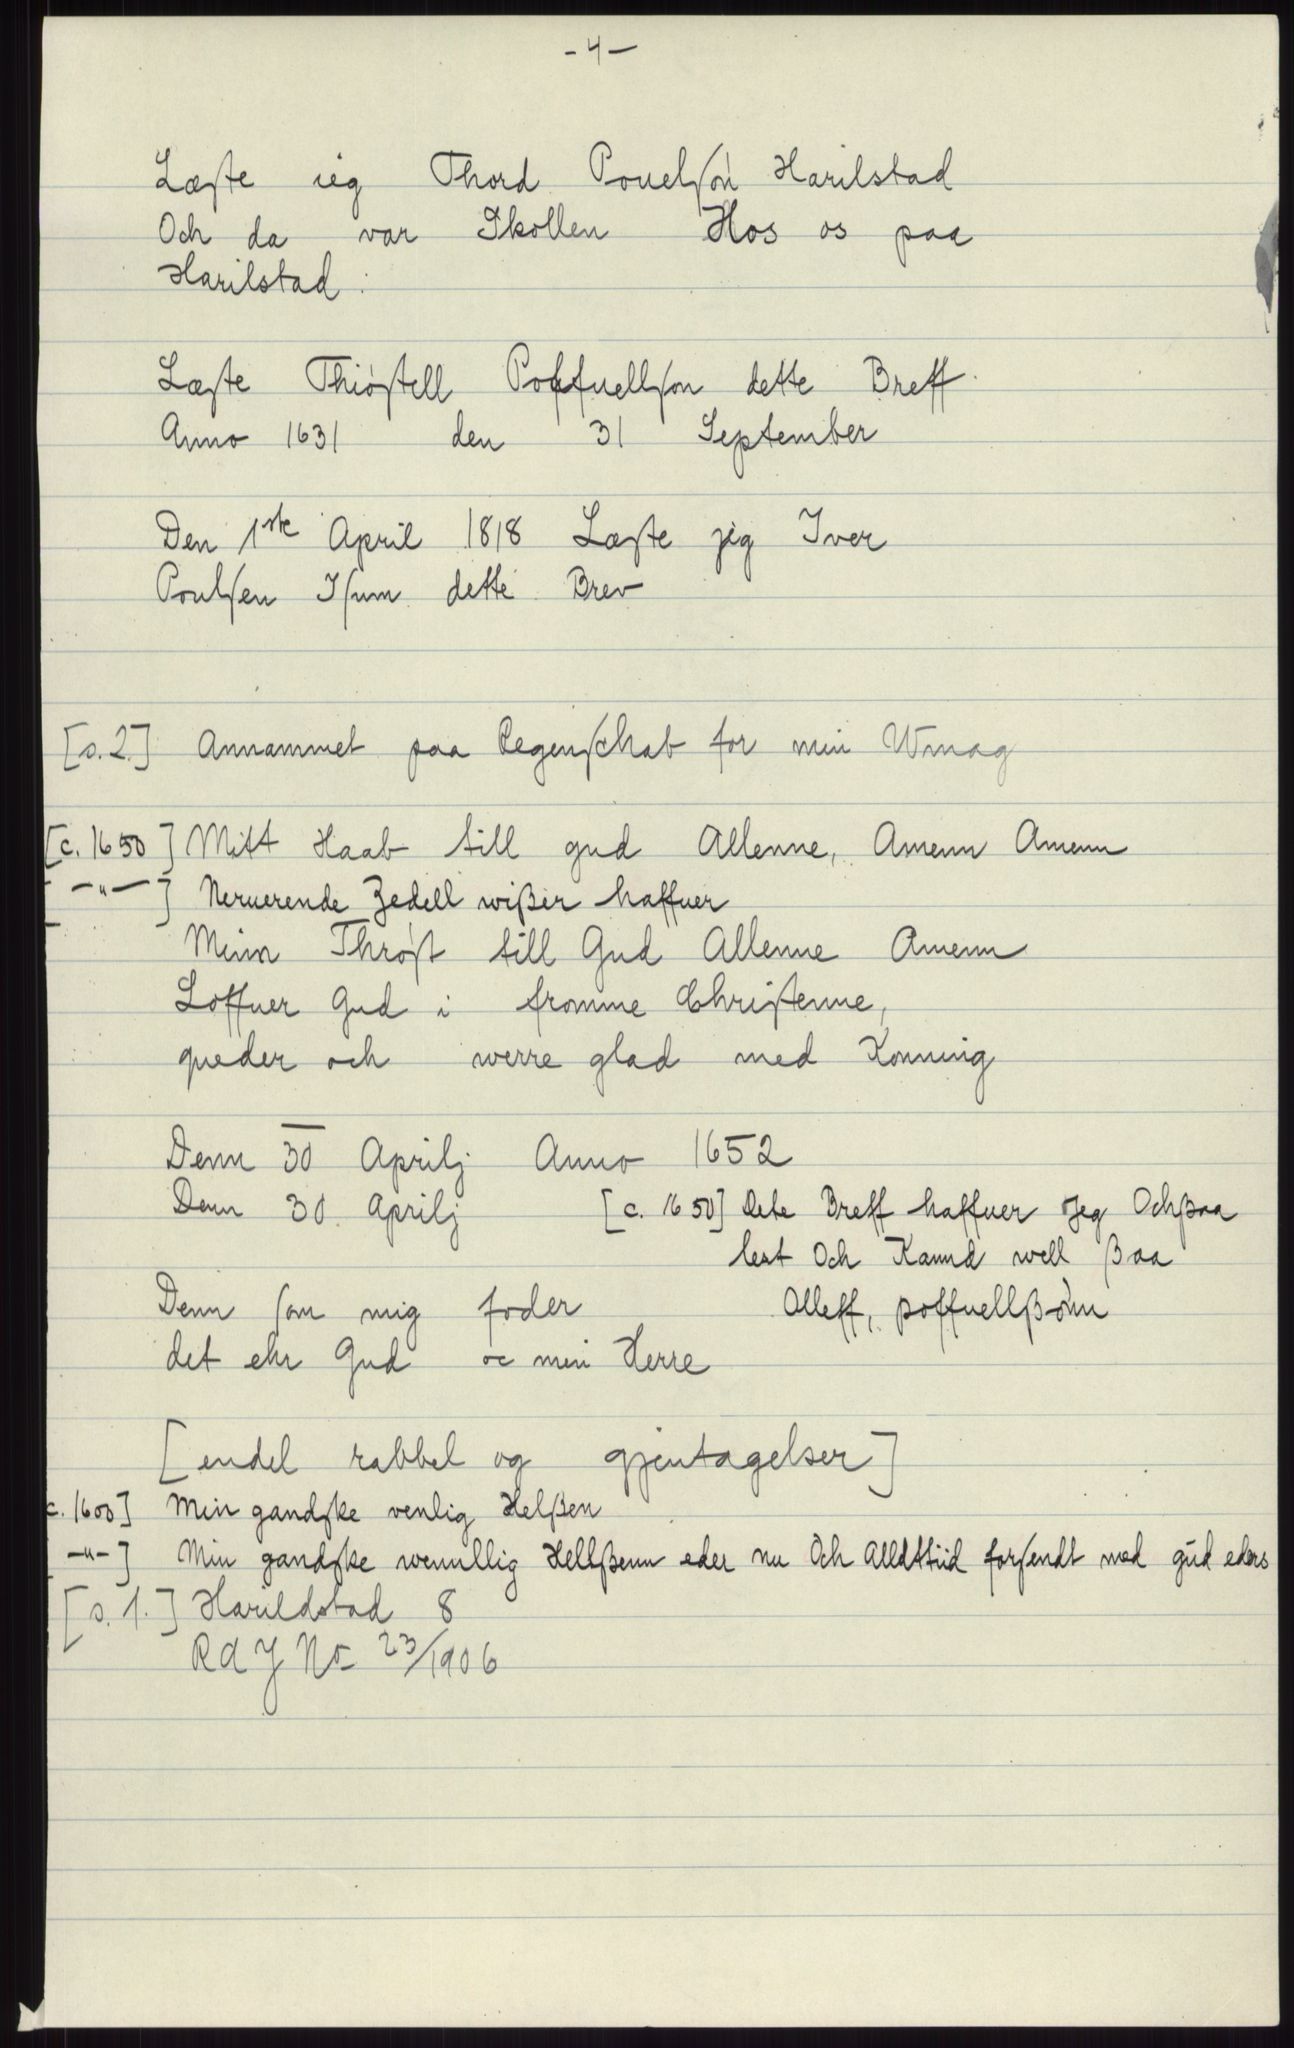 -4-
Læste ieg Thord Pouelsøn Harilstad
Och da var Skollen Hos os paa
Harilstad.
Læste Thiøstell Poffuellson dette Breff.
Anno 1631 den 31 September
Den 1ste April 1818 Læste jeg Iver
Poulsen Isum dette Brev
[s. 2.] Annammet paa Regenschab for min Wmag
[c. 1650] Mitt Haab till gud Allenne, Amenn Amenn
[-"-] Neruerende Zedell wißer haffuer
Minn Thrøst till Gud Allenne Amenn
Loffuer Gud i fromme Christenne,
queder och werre glad med Konning
Denn 30 Aprilj Anno 1652
Denn 30 Aprilj
[c. 1650] Dete Breff haffuer Jeg Ochßaa
lest Och Kannd well ßaa
Olleff, poffuellßønn
Denn som mig foder
det ehr Gud oc min Herre
[endel rabbel og gjentagelser]
c. 1600] Min gandske venlig Helßen
[-"-] Min gandske wennllig Hellßenn eder nu Och Alldttiid forsendt med gud eders
[s. 1.] Harildstad 8
R A J No 23/1906